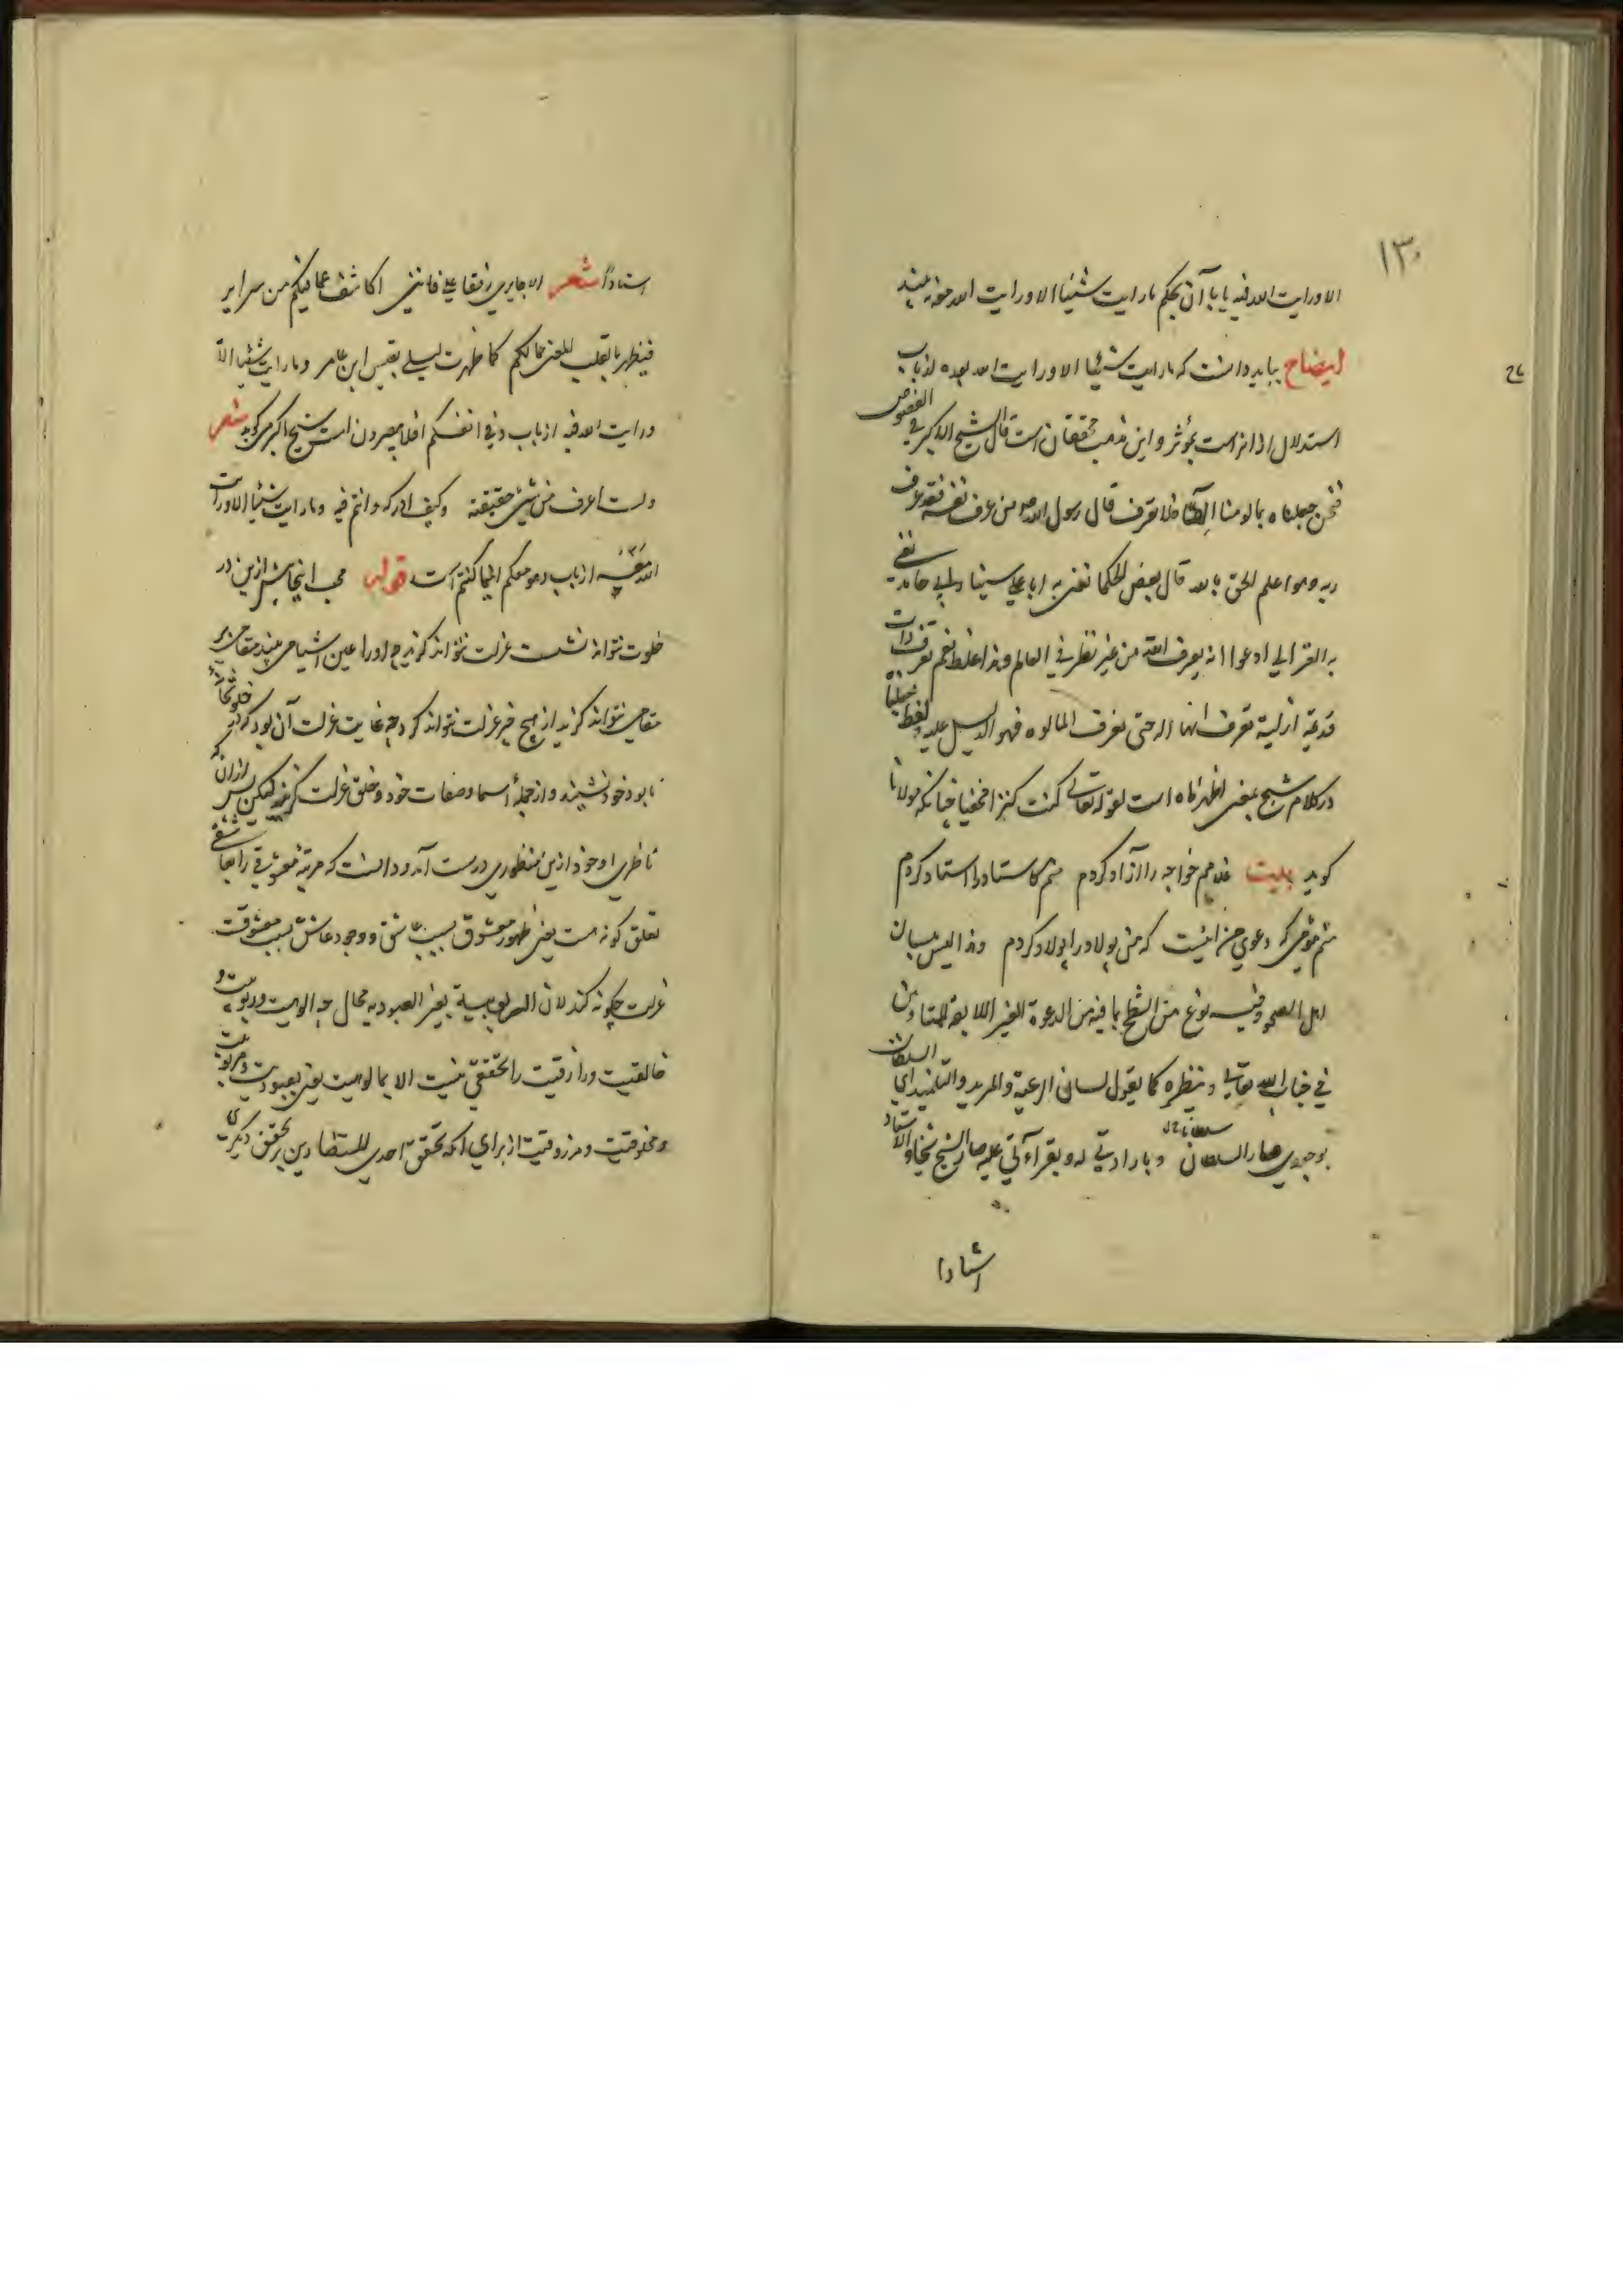 ۱۳
الا ورایت الله فیه یا با آن بحکم ما رایت شیئا الا ورایت الله معه بیند
ایضاح بباید دانست که ما رایت شیئا الا ورایت الله بعده از باب
استدلال از اثر است بمؤثر و این مذهب محققان است قال الشیخ الاکبر فی الفصوص
فنحن جعلناه بمالوهیتنا الها فلا تعرف قال رسول الله من عرف نفسه فقد عرف
ربه وهو اعلم الحق بالله قال بعض الحکما نعنی به ابا علی سینا وابی حامد نعنی
به الغزالی ادعوا انه یعرف الله من غیر نظر فی العالم وهذا غلط نعم تعرف ذات
قدیمة ازلیة تعرف انها اله حتی تعرف المالوه فهو الدلیل علیه ولفظ جعلنا
در کلام شیخ بمعنی اظهرناه است لقوله تعالی کنت کنزا مخفیا چنانکه مولانا
گوید بیت غلامم خواجه را آزاد کردم منم کاستاد را استاد کردم
منم مومی که دعوی من اینست که من پولاد را پولاد کردم وهذا لیس بلسان
اهل الصحو وفیه نوع من الشطح بما فیه من الدعوة الغیر اللایقة للمتادبین
فی جناب الله تعالی ونظیره کما یقول لسان الرعیة والمرید والتلمیذ ای السلطان
بوجودی صار السلطان سلطانا وبارادتی له وبقرآءتی علیه صار الشیخ شیخا والاستاد
استادا
استاداً شعر الا جابری رفقا علی فاننی اکاشف عما فیکم من سرایر
فینظر بالقلب المعنی جمالکم کما ظهرت لیلی بقیس ابن عامر وما رایت شیئا الا
ورایت الله فیه از باب وفی انفسکم افلا تبصرون است شیخ اکبر می گوید شعر
ولست اعرف من شیئ حقیقته وکیف ادرکه وانتم فیه وما رایت شیئا الا ورایت
الله معه از باب وهو معکم اینما کنتم است قوله محب اینجا بیش ازین در
خلوت نتواند نشست عزلت نتواند گزید چه او را عین اشیا می بیند مقامی بر
مقامی نتواند گزید از هیچ چیز عزلت نتواند کرد چه غایت عزلت آن بود که در خلوتخانه
نابود خود نشیند و از جمله اسما وصفات خود وخلق عزلت گزیند لیکن پس ازان که
ناظری او خود ازین منظوری درست آمد و دانست که مرتبه معشوقی را بعاشقی
تعلق گونه هست یعنی ظهور معشوق بسبب عاشق و وجود عاشق بسبب معشوقست
عزلت چگونه کند لان الربوبیة بغیر العبودیه محال چه الوهیت وربوبیت و
خالقیت ورازقیت را تحققی نیست الا بمالوهیت یعنی بعبودیت ومربوبیت
ومخلوقیت ومرزوقیت از برای آنکه تحقق احدی المتضادین بر تحقق دیگری